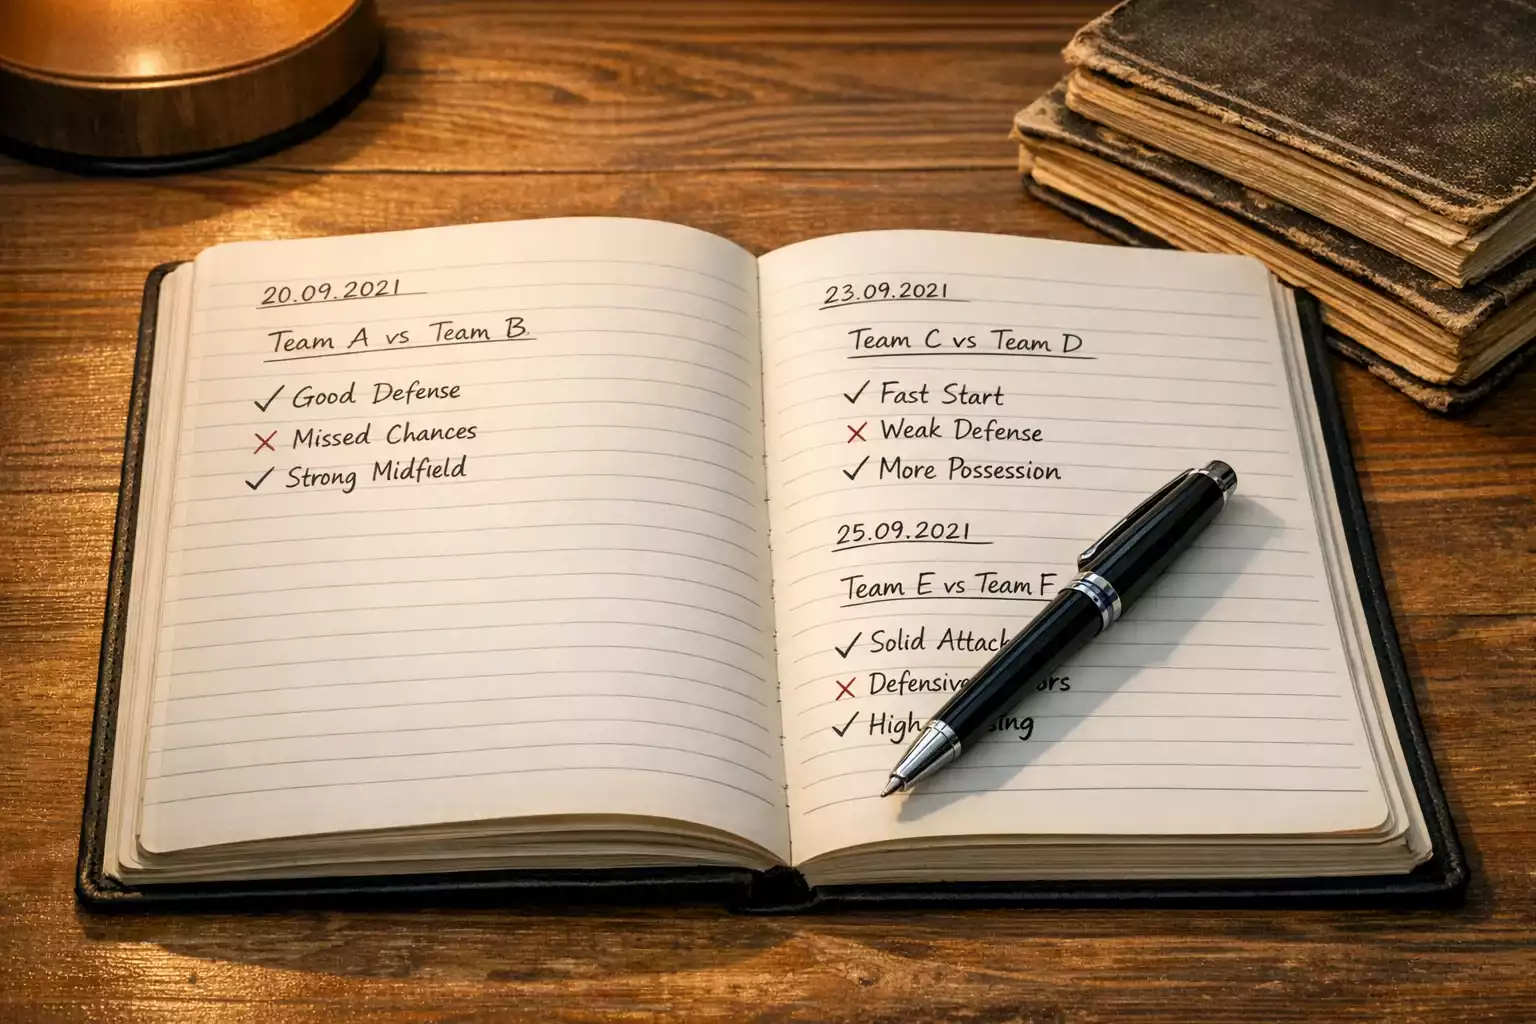 20.09.2021
Team A vs Team B.
✓ Good Defense
✗ Missed Chances
✓ Strong Midfield
23.09.2021
Team C vs Team D
✓ Fast Start
✗ Weak Defense
✓ More Possession
25.09.2021
Team E vs Team F
✓ Solid Attack
✗ Defensive
✓ High